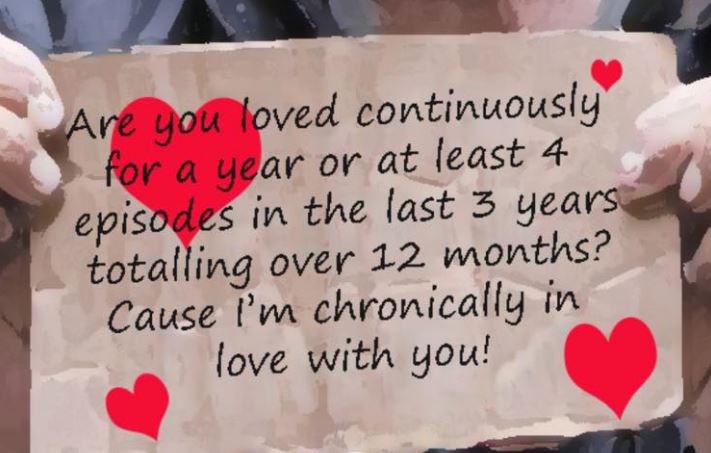 Are you loved continuously
for a year or at least 4
episodes in the last 3 years
totalling over 12 months?
Cause I'm chronically in
love with you!